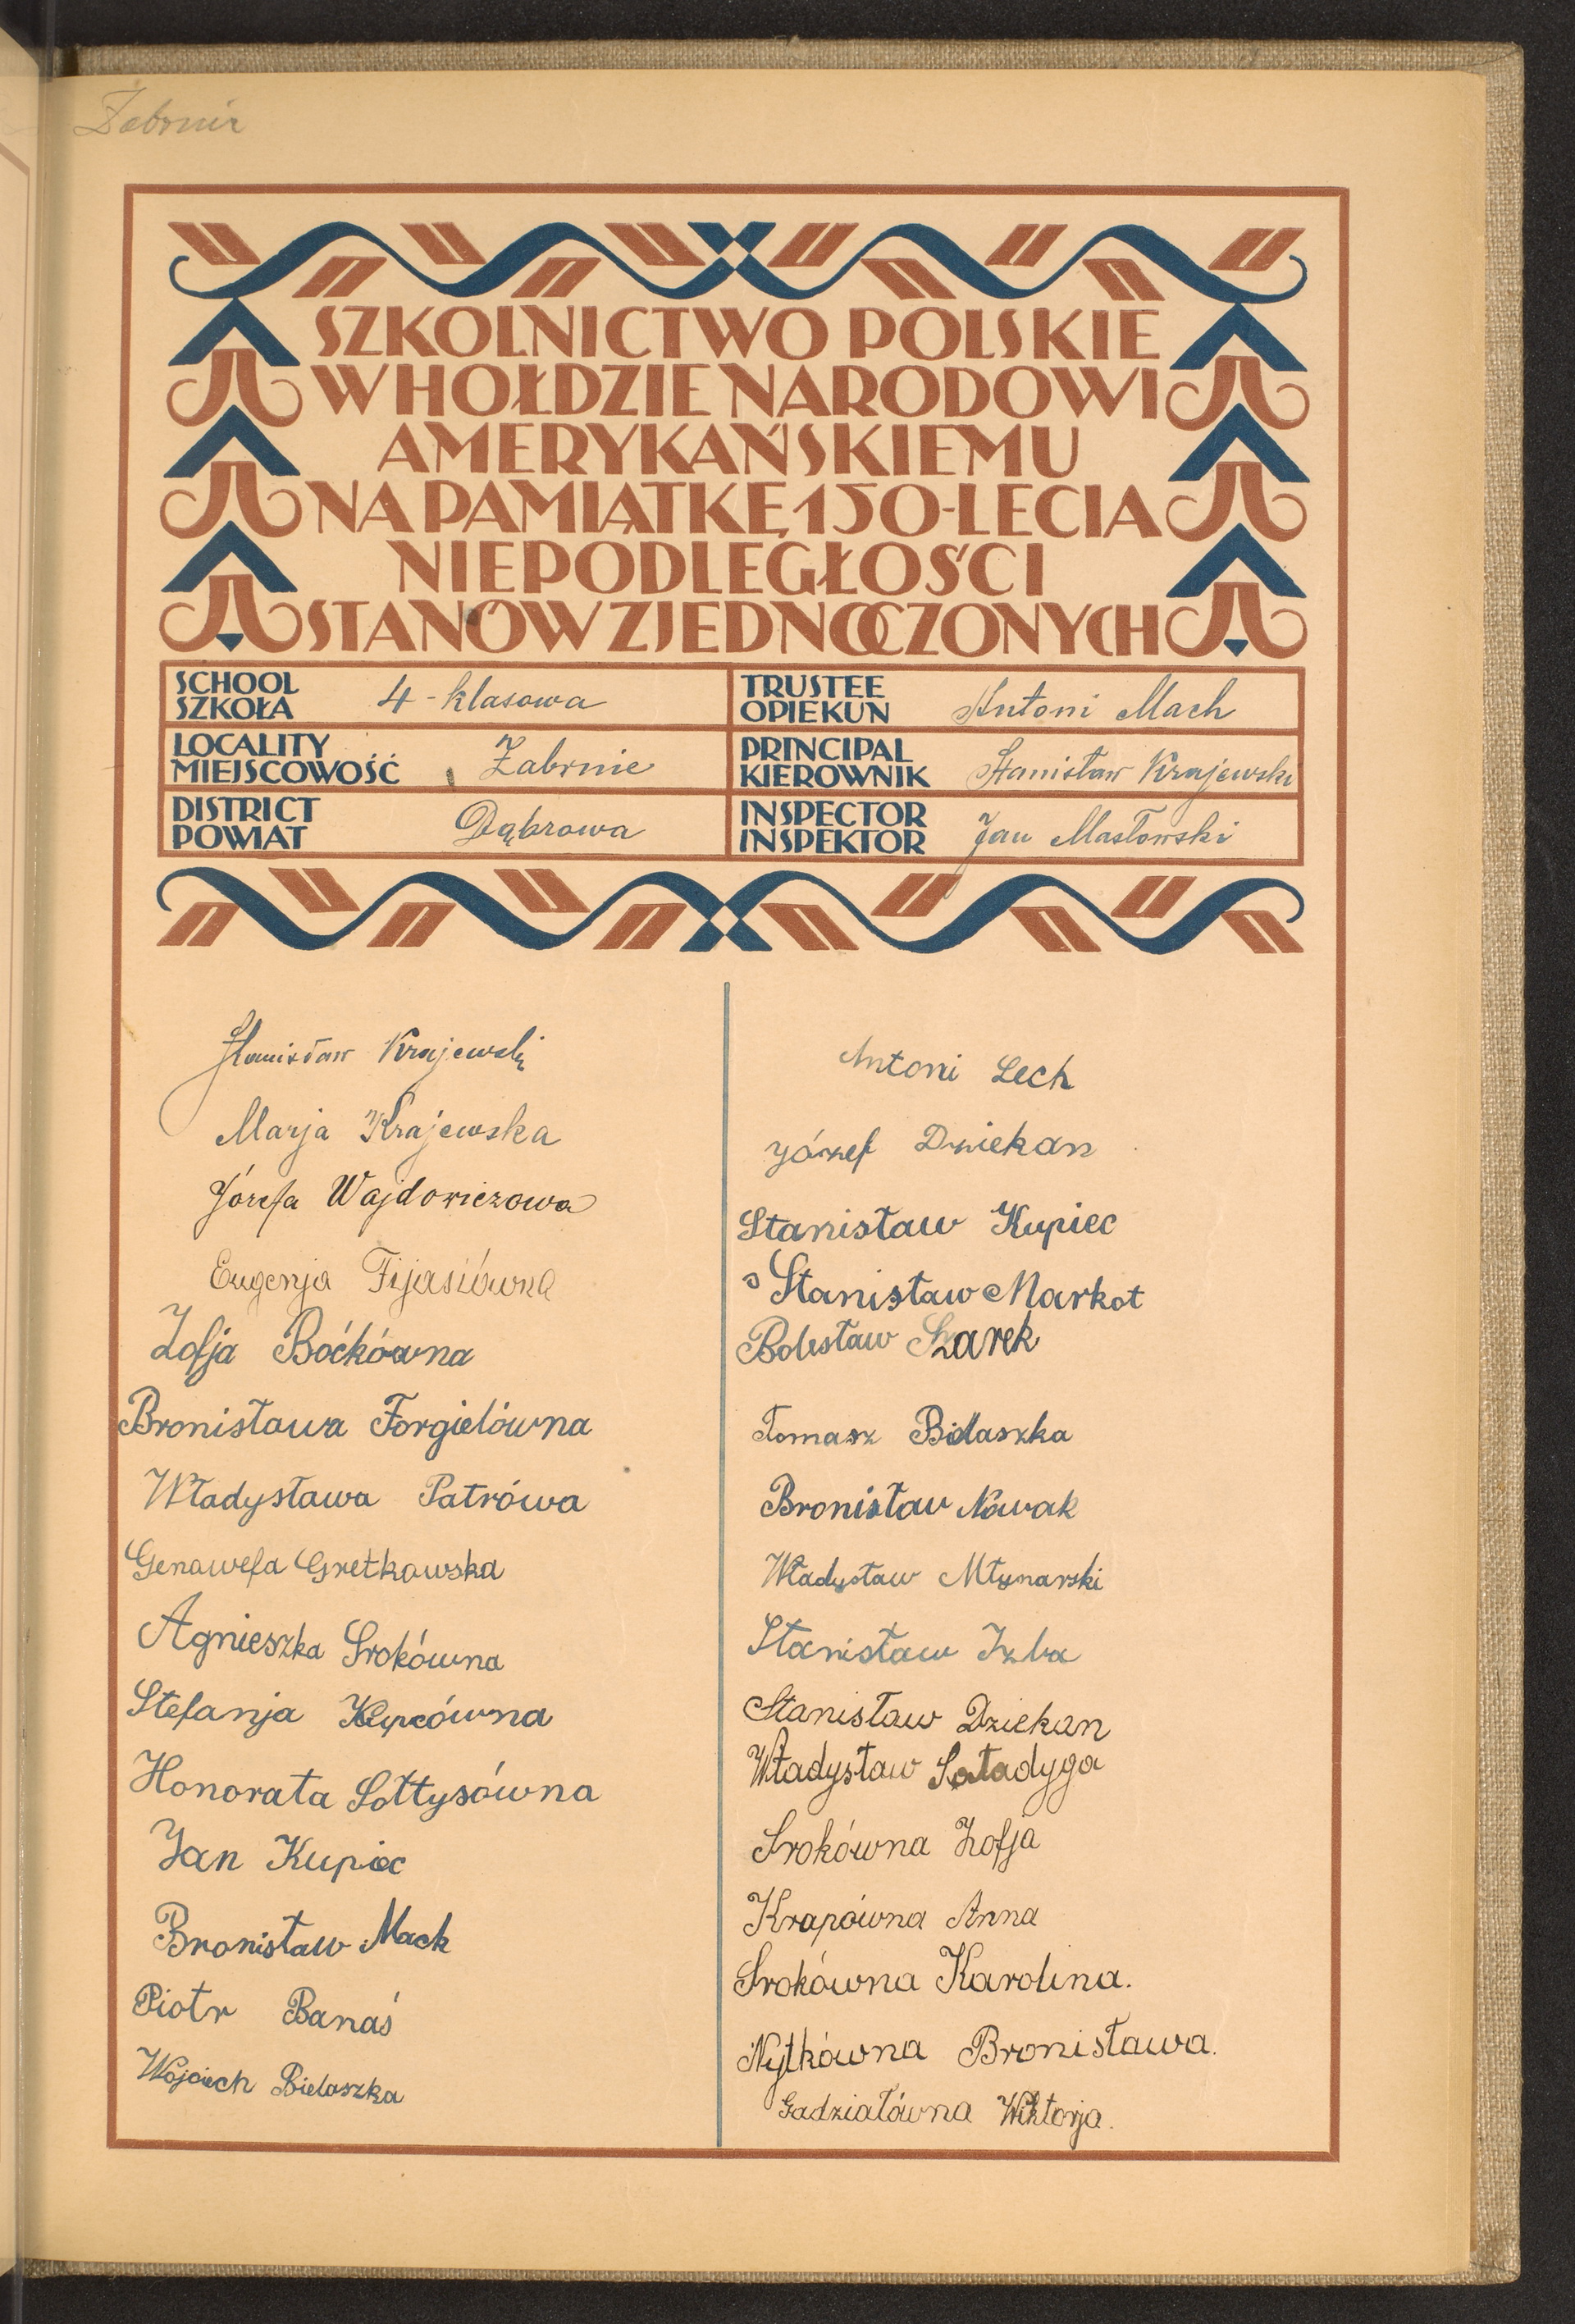 Żabrnie
SZKOLNICTWO POLSKIE
W HOŁDZIE NARODOWI
AMERYKAŃSKIEMU
NA PAMIĄTKĘ 150-LECIA
NIEPODLEGŁOŚCI
STANÓW ZJEDNOCZONYCH
SCHOOL
SZKOŁA 4-klasowa
TRUSTEE
OPIEKUN Antoni Mach
LOCALITY
MIEJSCOWOŚĆ Żabrnie
PRINCIPAL
KIEROWNIK Stanisław Krajewski
DISTRICT
POWIAT Dąbrowa
INSPECTOR
INSPEKTOR Jan Masłowski
Stanisław Krajewski
Marja Krajewska
Józefa Wajdowiczowa
Eugenja Fijasiówna
Zofja Boćkówna
Bronisława Forgielówna
Władysława Patrówa
Genowefa Gretkowska
Agnieszka Srokówna
Stefanja Kupcówna
Honorata Sołtysówna
Jan Kupiec
Bronisław Mack
Piotr Banaś
Wojciech Bielaszka
Antoni Lech
Józef Dziekan
Stanisław Kupiec
Stanisław Markot
Bolesław Szarek
Tomasz Bielaszka
Bronisław Nowak
Władysław Młynarski
Stanisław Izba
Stanisław Dziekan
Władysław Sataadyga
Srokówna Zofja
Krapówna Anna
Srokówna Karolina.
Nytkówna Bronisława.
Gadziałówna Wiktorja.